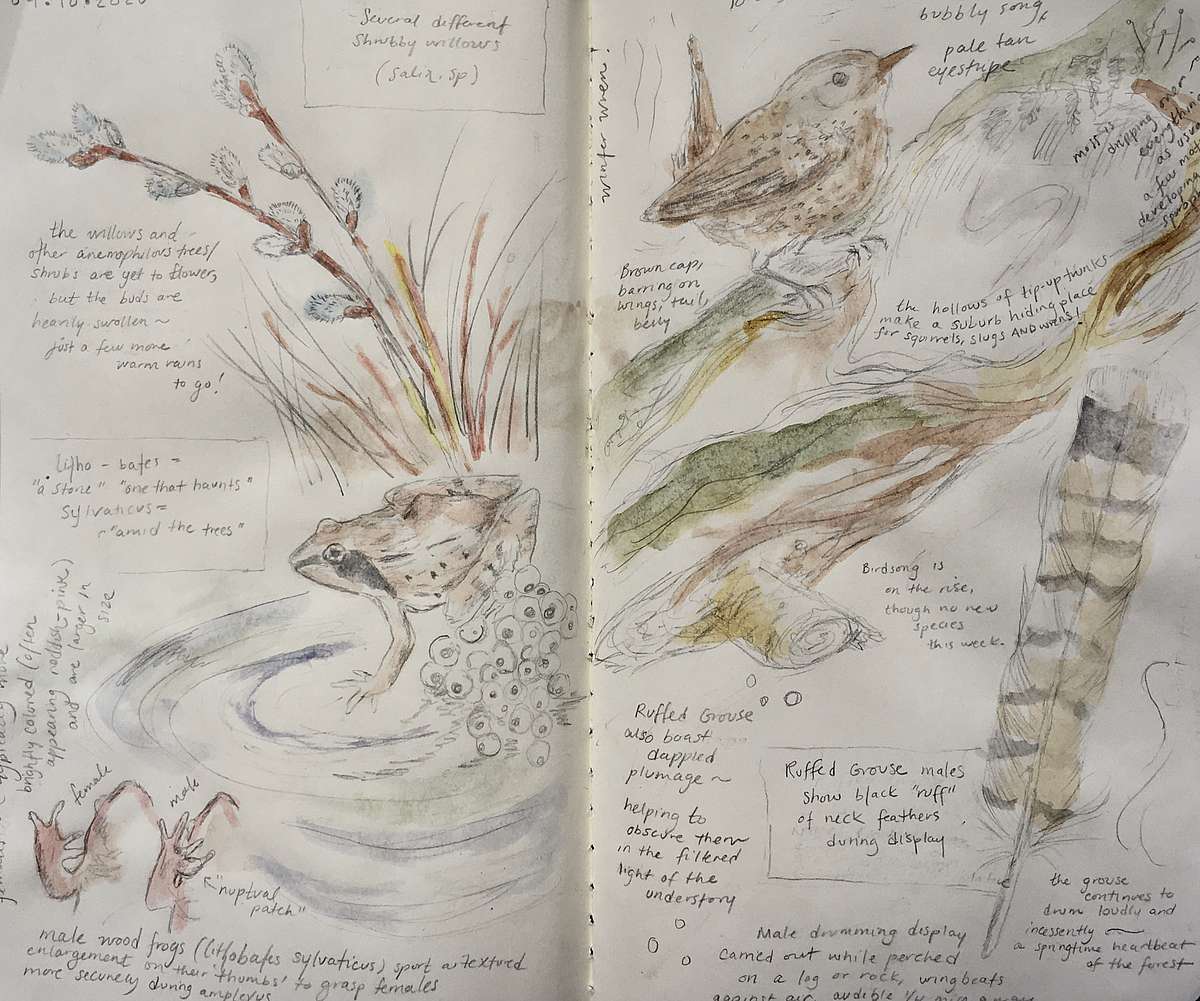 09.10.2020
Several different
Shrubby willows
(Salix. sp)
the willows and
other anemophilous trees/
shrubs are yet to flower,
but the buds are
heavily swollen ~
just a few more
warm rains
to go!
litho - bates =
"a stone" "one that haunts"
sylvaticus =
"amid the trees"
brightly colored (often
appearing reddish-pink)
and are larger in
size
female
male
"nuptual
patch"
male wood frogs (lithobates sylvaticus) sport a textured
enlargement on their 'thumbs' to grasp females
more securely during amplexus
winter wren
bubbly song
pale tan
eyestripe
moss is
dripping
everything
as usual
a few
developing
Brown cap,
barring on
wings, tail,
belly
the hollows of tip-up trunks
make a suburb hiding place
for squirrels, slugs AND wrens!
Birdsong is
on the rise,
though no new
species
this week.
Ruffed Grouse
also boast
dappled
plumage ~
helping to
obscure them
in the filtered
light of the
understory
Ruffed Grouse males
show black "ruff"
of neck feathers
during display
the grouse
continues to
drum loudly and
incessently ~
a springtime heartbeat
of the forest
Male drumming display
carried out while perched
on a log or rock, wingbeats
against air, audible 1/4 mile away